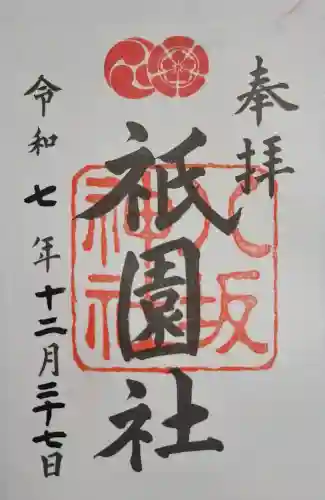 奉拝
祇園社
八坂神社
令和七年十二月二十七日